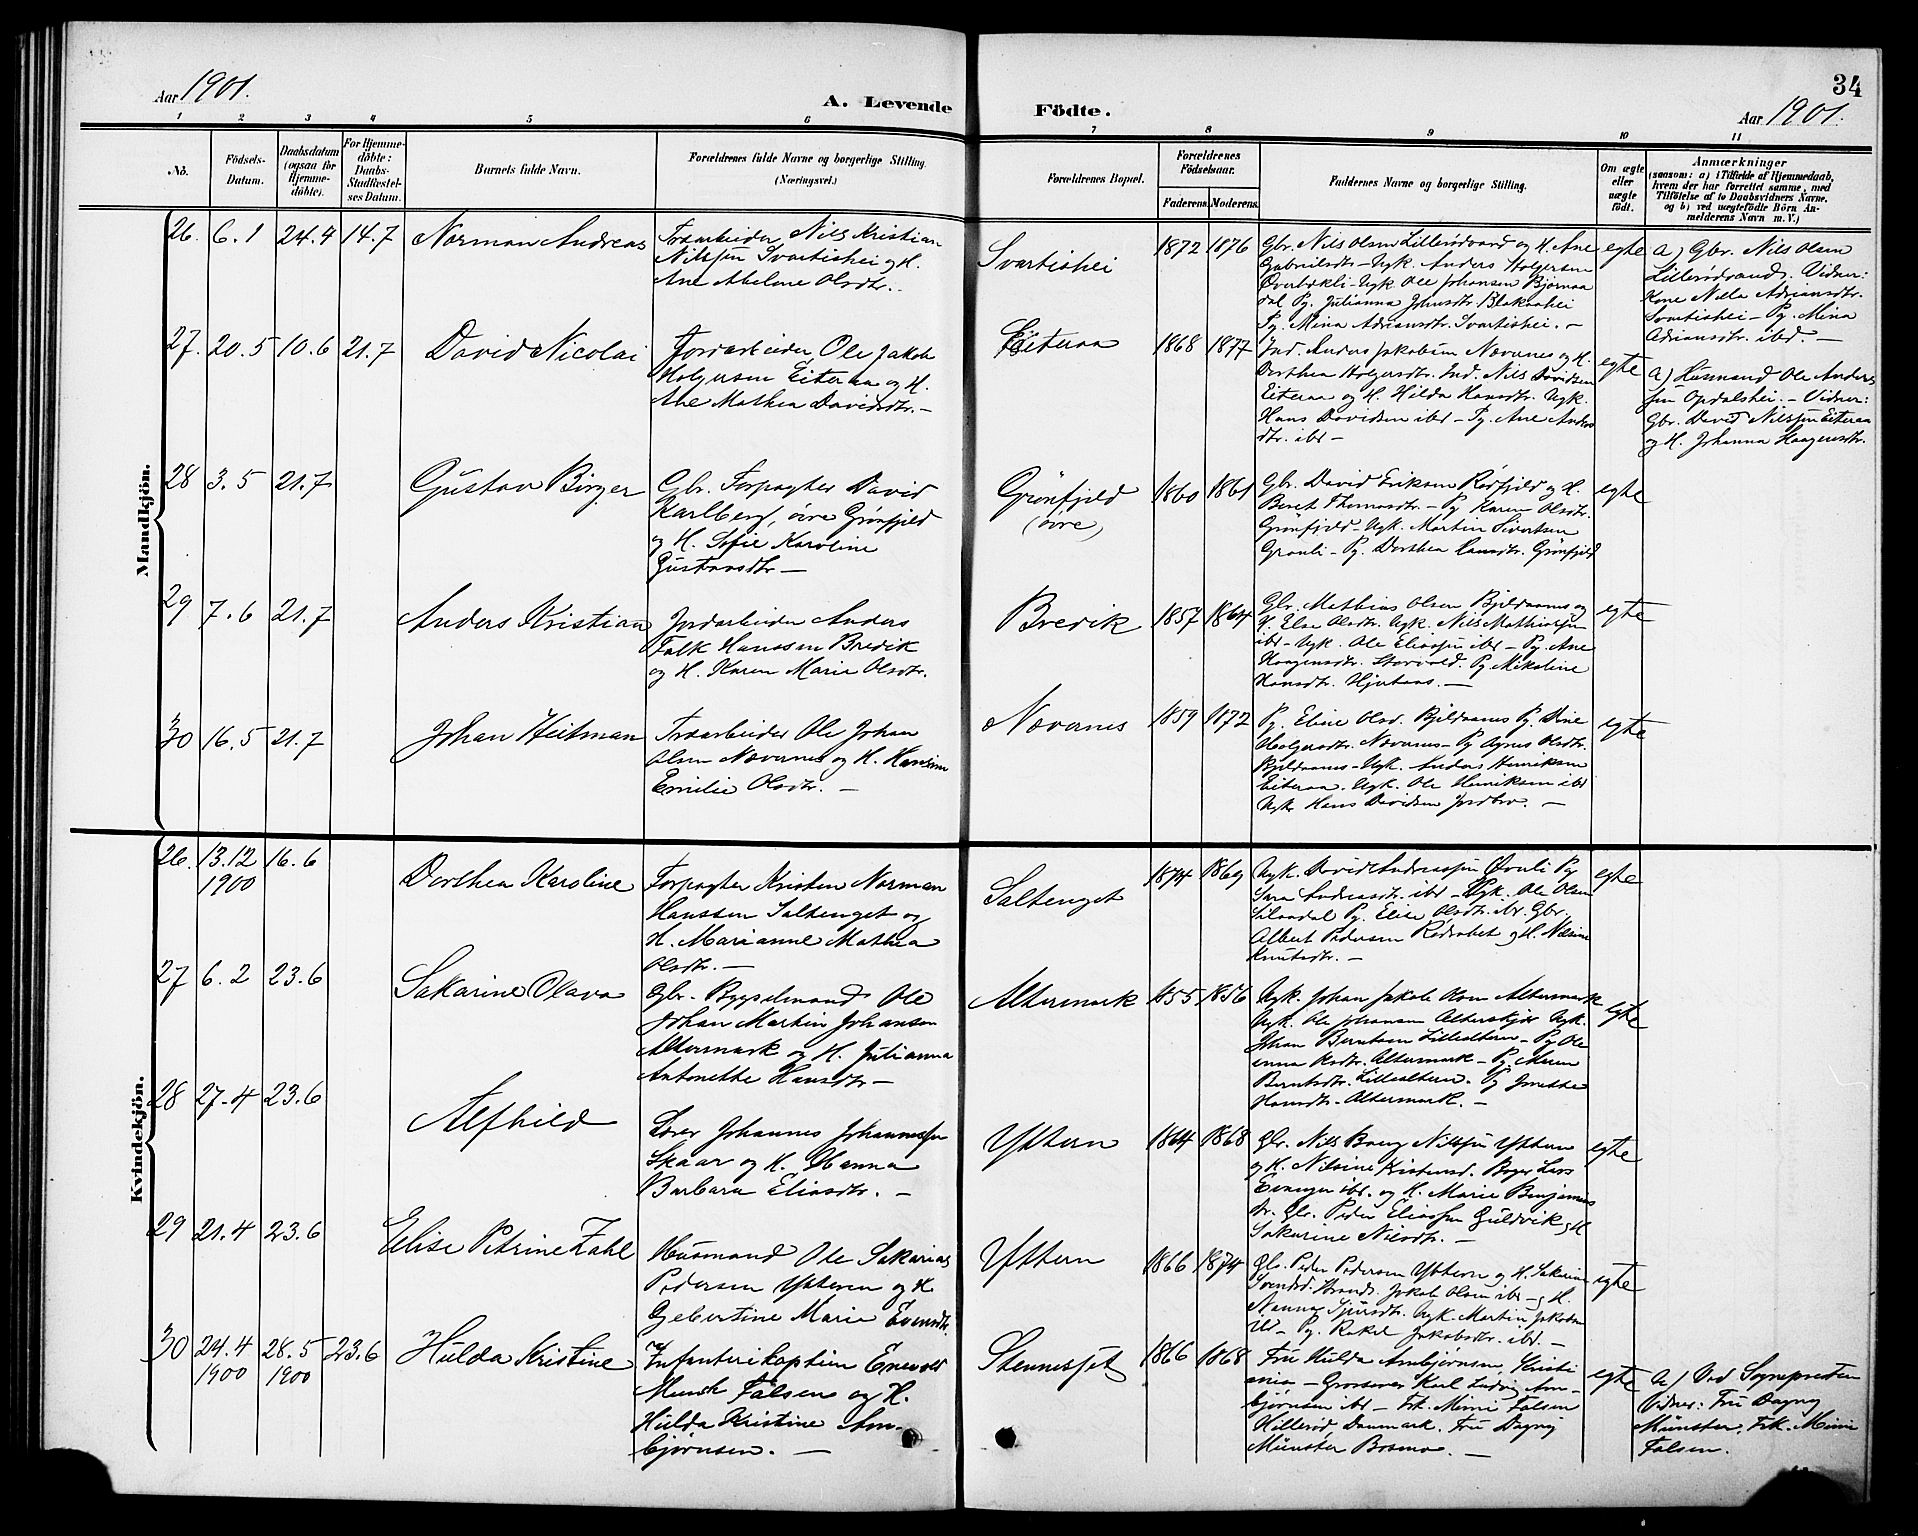 Aar 1901.
A. Levende
Födte.
34
Aar 1901.
1 2 3 4 5 6 7 8 9 10 11
No.
Födsels-
Datum.
Daabsdatum
(ogsaa for
Hjemme-
döbte).
For Hjemme-
döbte:
Daabs-
Stadfæstel-
ses Datum.
Barnets fulde Navn.
Forældrenes fulde Navne og borgerlige Stilling.
(Næringsvei.)
Forældrenes Bopæl.
Forældrenes
Födselsaar.
Faderens.
Moderens.
Faddernes Navne og borgerlige Stilling.
Om ægte
eller
uægte
födt.
Anmærkninger
(saasom: a) i Tilfælde af Hjemmedaab,
hvem der har forrettet samme, med
Tilföielse af to Daabsvidners Navne,
og b) ved uægtefödte Börn An-
melderens Navn m. V.)
Mandkjön.
26. 6.1 24.4 14.7 Norman Andreas
Træarbeider Nils Kristian
Nilssen Svartishei og H.
Ane Abelone Olsdtr.
Svartishei
1872 1876
Gbr. Nils Olsen Lillerødvand og H. Ane
Gabrielsdtr. – Ugk. Anders Holgersen
Øverbekli – Ugk Ole Johansen Bjørnaa
dal Pg. Julianna Johnsdtr. Blakaahei
Pg. Mina Adriansdtr. Svartishei. –
egte
a) Gbr. Nils Olsen
Lillerødvand. Vidner:
Kone Nilla Adriansdtr.
Svartishei – Pg. Mina
Adriansdtr. ibd. –
27. 20.5 10.6 21.7 David Nicolai
Jordarbeider Ole Jakob
Holgersen Eiteraa og H.
Ane Mathea Davidsdtr. –
Eiteraa
1868 1877
Ind. Anders Jakobsen Nævernes og H.
Dorthea Holgersdtr. Ind. Nils Davidsen
Eiteraa og H. Hilda Hansdtr. Ugk.
Hans Davidsen ibd – Pg. Ane Anders
dtr. ibd –
egte
a) Husmand Ole Anders
sen Opdalshei. – Vidner:
Gbr. David Nilssen Eiteraa
og H. Johanna Haagensdtr.
28 3.5 21.7 Gustav Birger
Gbr. Forpagter David
Karlberg, øvre Grønfjeld
og H. Sofie Karoline
Gustavsdtr –
Grønfjeld
(øvre)
1860 1861
Gbr. David Eriksen Rødfjeld og H.
Beret Thomasdtr. – Pg Karen Olsdtr.
Grønfjeld – Ugk. Martin Sivertsen
Granli – Pg. Dorthea Hansdtr. Grønfjeld
egte
29 7.6 21.7 Anders Kristian
Jordarbeider Anders
Falk Hanssen Bredik
og H. Karen Marie Olsdtr.
Bredik
1857 1864
Gbr. Mathias Olsen Bjeldaanes og
H. Else Olsdtr. Ugk. Nils Mathiassen
ibd – Ugk. Ole Eliassen ibd – Pg. Ane
Haagensdtr. Storvold. Pg. Nikoline
Hansdtr. Hjertaas. –
egte
30 16.5 21.7 Johan Heitman
Træarbeider Ole Johan
Olsen Nævernes og H. Hansine
Emilie Olsdtr. –
Nævernes
1859 1872
Pg. Eline Olsd. Bjeldaanes Pg. Dine
Holgersdtr. Nævernes – Pg Agnes Olsdtr.
Bjeldaanes – Ugk. Anders Henriksen
Eiteraa. Ugk. Ole Henriksen ibd
Ugk Hans Davidsen Jordbro. –
egte
Kvindekjön.
26. 13.12
1900
16.6 Dorthea Karoline
Forpagter Kristen Norman
Hanssen Saltenget og
H. Marianne Mathea
Olsdtr. –
Saltenget
1874 1869
Ugk. David Andreassen Øvnli Pg
Sara Andreasdtr. ibd – Ugk. Ole Olsen
Pg. Elise Olsdtr. ibd. Gbr.
Albert Pedersen og H. Nilsine
Knutsdtr. –
egte
27 6.2 23.6 Sakarine Olava
Gbr. Bygselmand Ole
Johan Martin Johansen
Altermark og H. Julianna
Antonette Hansdtr –
Altermark
1855 1856
Ugk. Johan Jakob Olsen Altermark
Ugk. Ole Johansen Alterskjær Ugk.
Johan Berntsen Lillealtern – Pg Ole
anna Altermark – Pg Maren
Berntsdtr. Lillealtern. Pg Jonette
Hansdtr. Altermark. –
egte
28 27.4 23.6 Alfhild
Lærer Johannes Johannessen
Skaar og H. Hanna
Barbara Eliasdtr. –
Yttern
1864 1868
Gbr. Nils Bang Nilssen Yttern
og H. Nilsine Kristensd. Bager Lars
Evensen ibd. og H. Marie Benjamins
dr. Gbr. Peder Eliassen Guldvik og H
Sakarine Nilsdtr. –
egte
29 21.4 23.6 Elise Petrine Zahl
Husmand Ole Sakarias
Pedersen Ytteren og H
Gjebertine Marie Evensdtr.
Yttern
1866 1874
Gbr. Peder Pedersen Yttern og H. Sakarine
Svendsd. Strands. Jakob Olsen ibd – og H.
Nanna Sjursdtr. Ugk. Martin Jakobsen
ibd – Pg. Rakel Jakobsdtr. ibd. –
egte
30 24.4
1900
28.5
1900
23.6 Hulda Kristine
Infanterikaptein Enevold
Munch Falsen og H.
Hulda Kristine Arn-
bjørnsen. –
Stennesset
1866 1868
Fru Hulda Arnbjørnsen, Kristi
ania – Grosserer Karl Ludvig Arn-
bjørnsen ibd – Frk. Mimi Falsen
Hillerød, Danmark. Fru Dagny
Münster Bosmo –
egte
a) Ved Sognepresten
Vidner: Fru Dagny
Münster, Frk. Mimi
Falsen.